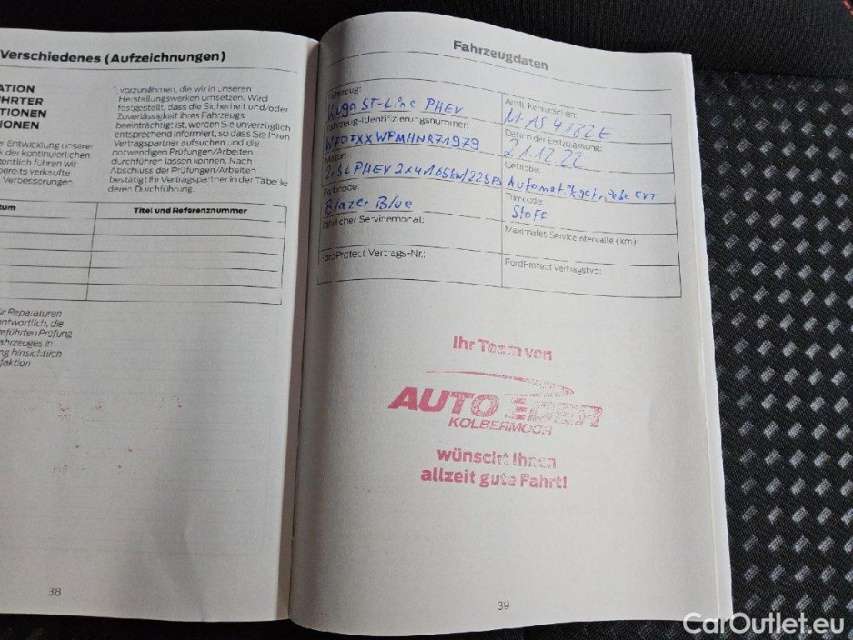 Verschiedenes (Aufzeichnungen)
ATION
HRTER
TIONEN
IONEN
er Entwicklung unserer
der kontinuierlichen
entlich führen wir
bereits verkaufte
Verbesserungen
vorzunehmen, die wir in unseren
Herstellungswerken umsetzen. Wird
festgestellt, dass die Sicherheit und/oder
Zuverlässigkeit Ihres Fahrzeugs
beeinträchtigt ist, werden Sie unverzüglich
entsprechend informiert, so dass Sie Ihren
Vertragspartner aufsuchen und die
notwendigen Prüfungen/Arbeiten
durchführen lassen können. Nach
Abschluss der Prüfungen/Arbeiten
bestätigt Ihr Vertragspartner in der Tabelle
deren Durchführung.
tum
Titel und Referenznummer
für Reparaturen
antwortlich, die
geführten Prüfung
ahrzeuges in
ng hinsichtlich
faktion
38
Fahrzeugdaten
Fahrzeug:
Kuga ST-Line PHEV
Amtl. Kennzeichen:
Fahrzeug-Identifizierungsnummer:
WF0TXXWPMHNR71979
Datum der Erstzulassung:
21.12.22
Motor:
Getriebe:
Automatikgetriebe CVT
Farbcode:
Blazer Blue
Trimcode:
Stoff
Jährlicher Servicemonat:
Maximales Serviceintervalle (km):
FordProtect Vertrags-Nr.:
FordProtect Vertragstyp:
Ihr Team von
AUTO EDER
KOLBERMOOR
wünscht Ihnen
allzeit gute Fahrt!
39
CarOutlet.eu